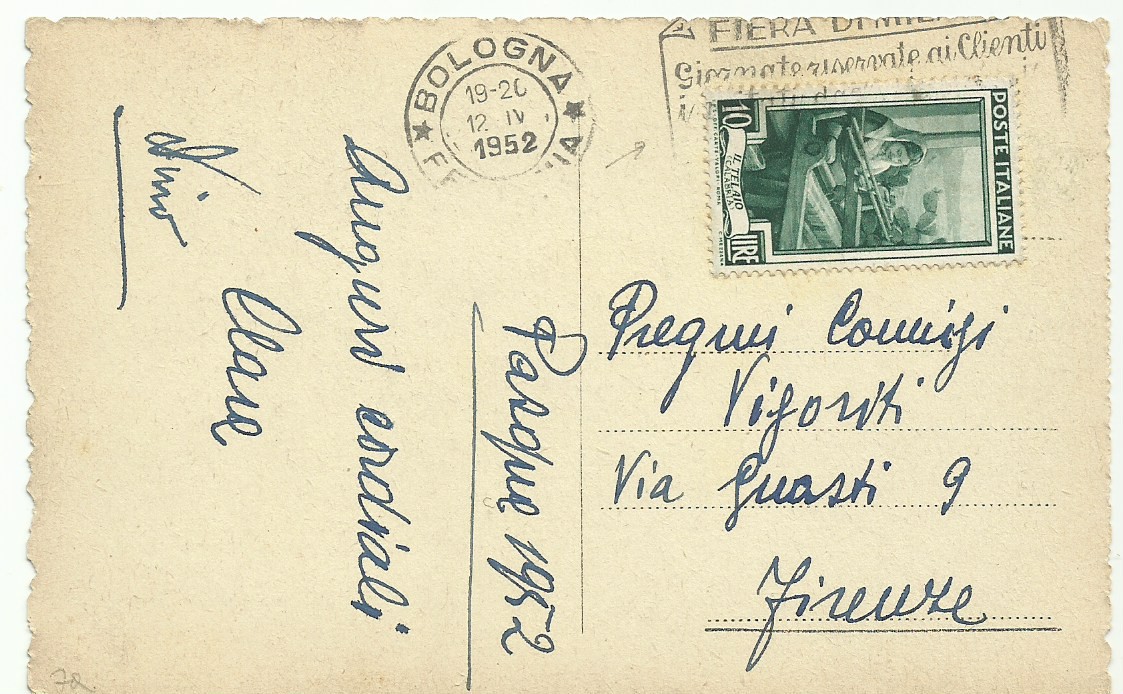 BOLOGNA
19-20
12 IV
1952
FIERA DI
Giornate riservate ai Clienti
POSTE ITALIANE
10
LIRE
IL TELAIO
CALABRIA
Pasqua 1952
Auguri cordiali
Clara
Nino
Pregmi Coniugi
Vigoriti
Via Guasti 9
Firenze